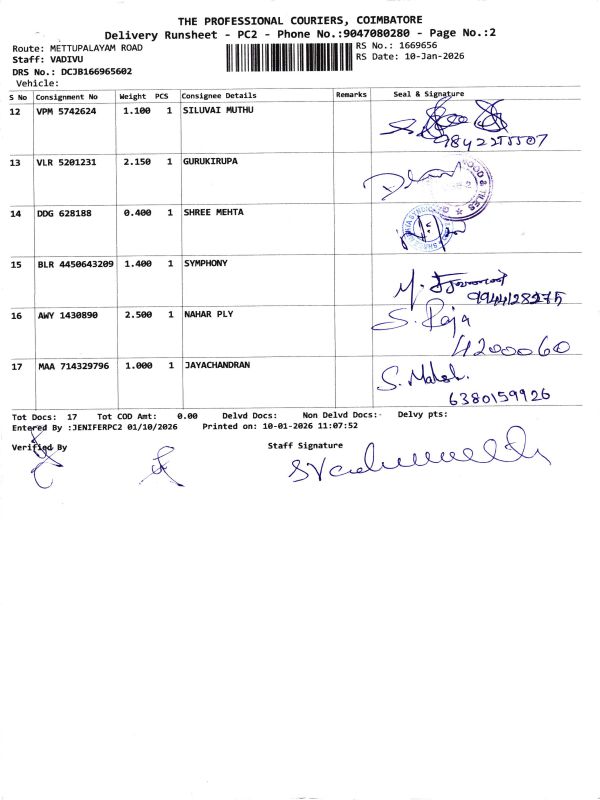 THE PROFESSIONAL COURIERS, COIMBATORE
Delivery Runsheet - PC2 - Phone No.:9047080280 - Page No.:2
Route: METTUPALAYAM ROAD RS No.: 1669656
Staff: VADIVU RS Date: 10-Jan-2026
DRS No.: DCJB166965602
Vehicle:
S No Consignment No Weight PCS Consignee Details Remarks Seal & Signature
12 VPM 5742624 1.100 1 SILUVAI MUTHU
13 VLR 5201231 2.150 1 GURUKIRUPA
WOOD & TILES
14 DDG 628188 0.400 1 SHREE MEHTA
15 BLR 4450643209 1.400 1 SYMPHONY
9944128275
16 AWY 1430890 2.500 1 NAHAR PLY
S. Raja
4200060
17 MAA 714329796 1.000 1 JAYACHANDRAN
S. Mahesh.
6380159926
Tot Docs: 17 Tot COD Amt: 0.00 Delvd Docs: Non Delvd Docs:- Delvy pts:
Entered By :JENIFERPC2 01/10/2026 Printed on: 10-01-2026 11:07:52
Verified By Staff Signature